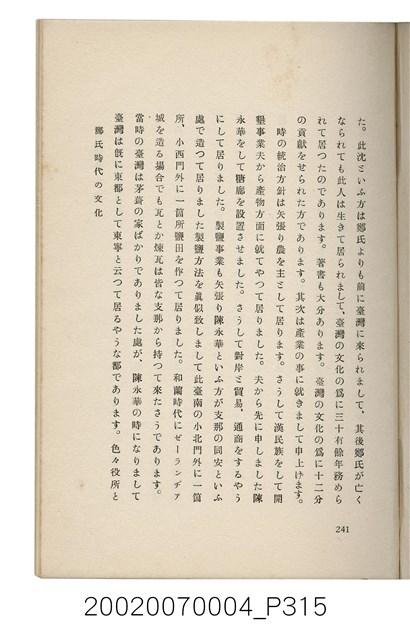 た。此沈といふ方は鄭氏よりも前に臺灣に來られまして、其後鄭氏が亡く
なられても此人は生きて居られまして、臺灣の文化の爲に三十有餘年務めら
れて居つたのであります。著書も大分あります。臺灣の文化の爲に十二分
の貢献をせられた方であります。其次は產業の事に就きまして申上げます。
時の統治方針は矢張り農を主として居ります。さうして漢民族をして開
墾事業夫から產物方面に就てやつて居りました。夫から先に申しました陳
永華をして糖廍を設置させました。さうして對岸と貿易、通商をするやう
にして居りました。製鹽事業も矢張り陳永華といふ方が支那の同安といふ
處で造つて居りました製鹽方法を眞似致しまして此臺南の小北門外に一箇
所、小西門外に一箇所鹽田を作つて居りました。和蘭時代にゼーランヂア
城を造る場合でも瓦とか煉瓦は皆な支那から持つて來たさうであります。
當時の臺灣は茅葺の家ばかりでありました處が、陳永華の時になりまして
臺灣は旣に東都として東寧と云つて居るやうな都であります。色々役所と
鄭氏時代の文化
241
20020070004_P315